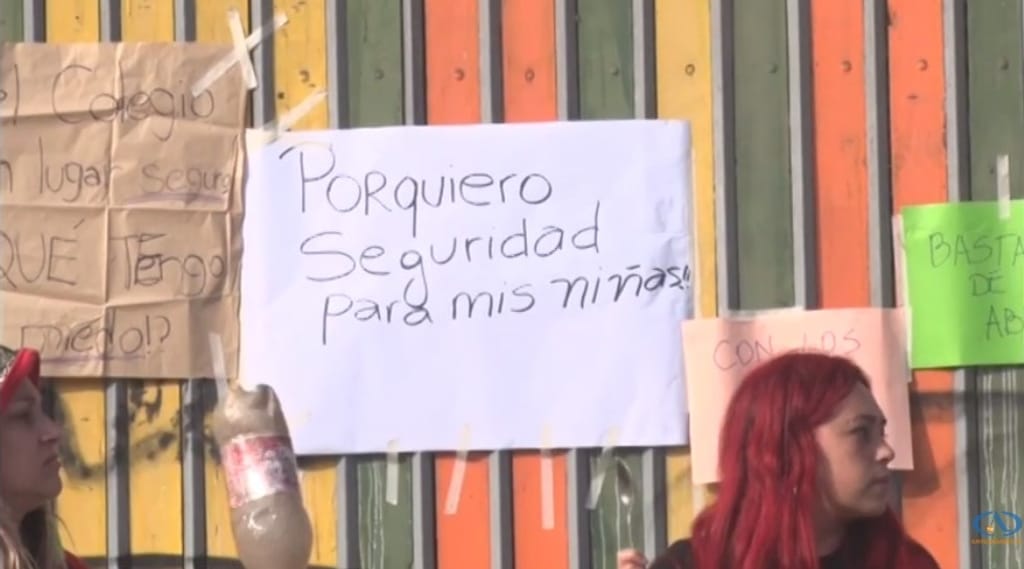 el Colegio
lugar seguro
QUÉ TEngo
miedo!?
PoRquiero
Seguridad
para mis niñas!!
CON LOS
BASTA
DE
AB